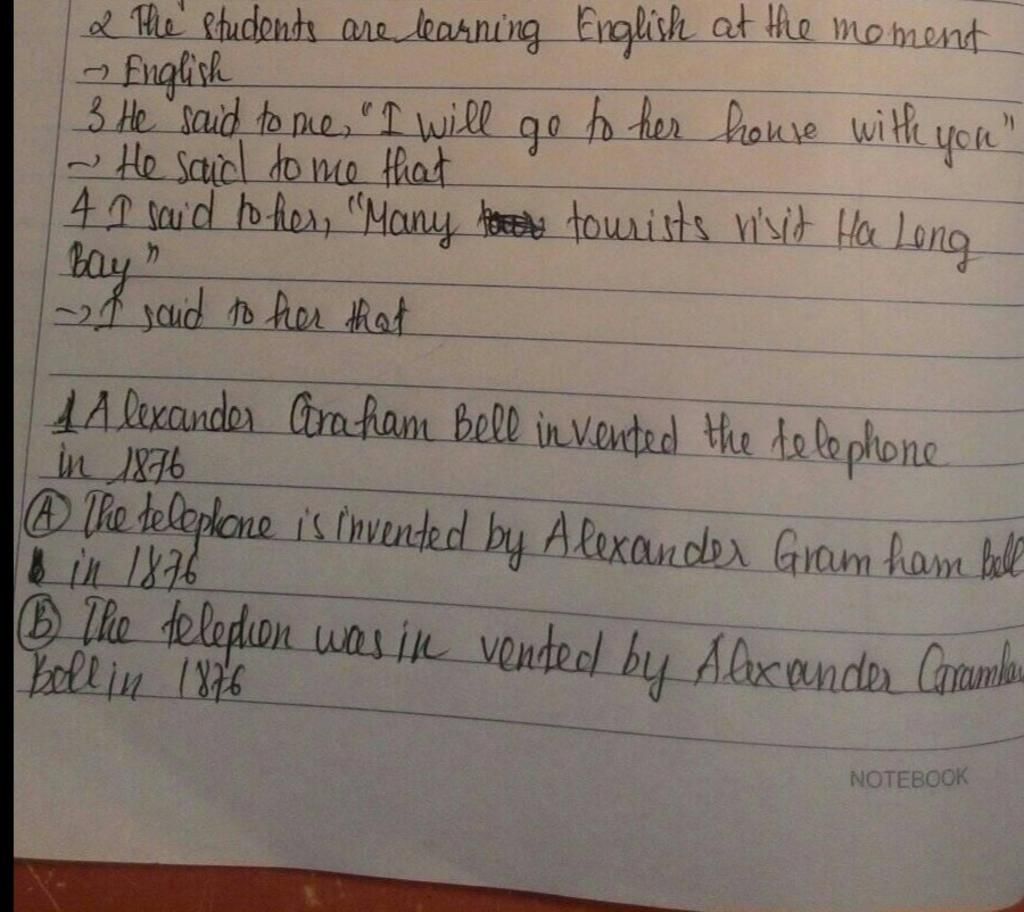 2 The students are learning English at the moment
→ English
3 He said to me, "I will go to her house with you"
→ He said to me that
4 I said to her, "Many tourists visit Ha Long
Bay"
→ I said to her that
1 Alexander Graham Bell invented the telephone
in 1876
Ⓐ The telephone is invented by Alexander Gram ham Bell
in 1876
Ⓑ The telephon was in vented by Alexander Gramha
Bell in 1876
NOTEBOOK